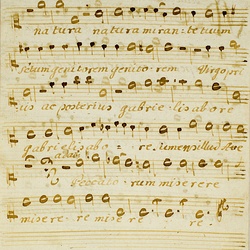 natura natura miran: te tuum
setum genitorem genito rem Virgo pri
us ac posterius gabrie: lis ab ore
gabrielis abo: re: sumens illud Ave
peccato: rum miserere
misere: re mise re re.